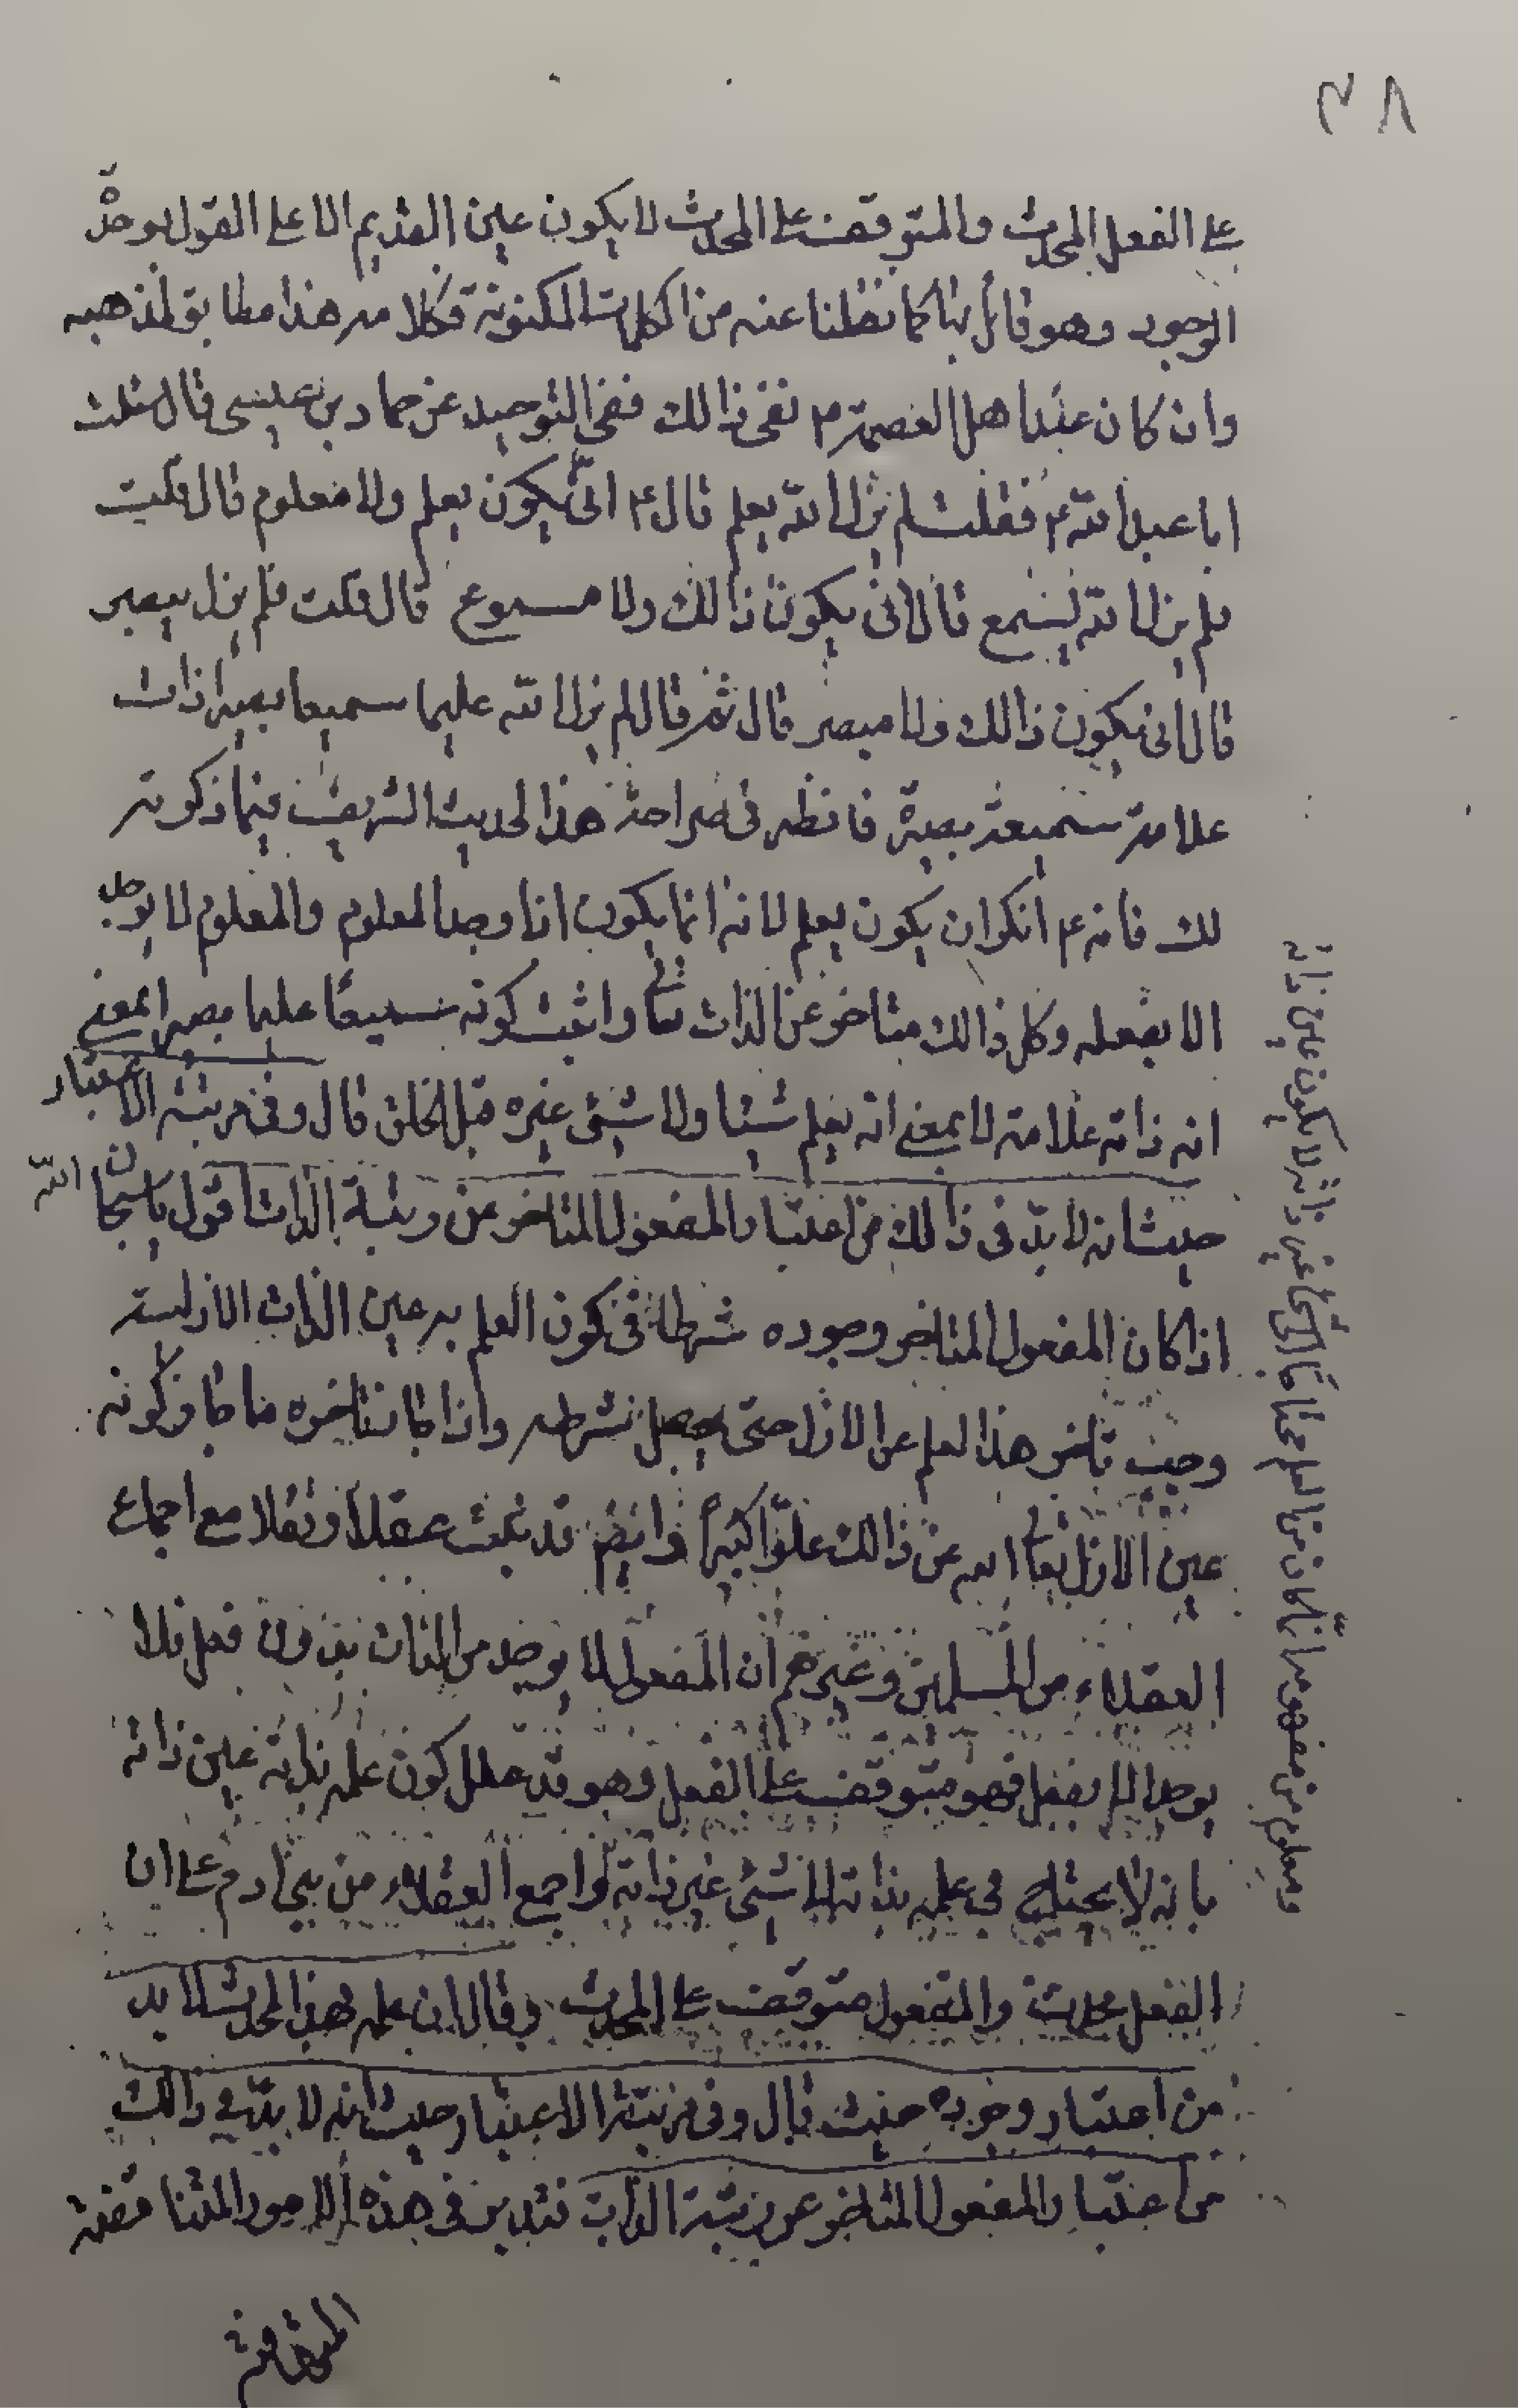 ٣٨
على الفعل المحدث والمتوقف على المحدث لا يكون عين القديم الا على القول بوحدة
الوجود وهو قائل بها كما نقلنا عنه من الكلمات المكنونة فكلامه هذا مطابق لمذهبه
وان كان عند اهل العصمة ع نفى ذالك ففى التوحيد عن حماد بن عيسى قال سئلت
ابا عبد الله ع فقلت لم يزل الله يعلم قال ع انّى يكون يعلم ولا معلوم قال قلت
فلم يزل الله يسمع قال انى يكون ذالك ولا مسموع قال قلت فلم يزل يبصر
قال انى يكون ذالك ولا مبصر قال ثم قال لم يزل الله عليما سميعا بصيرا ذات
علامة سميعة بصيرة فانظر فى صراحة هذا الحديث الشريف فيما ذكرته
لك فانه ع انكر ان يكون يعلم لانه انما يكون اذا وجد المعلوم والمعلوم لا يوجد
الا بفعله وكل ذالك متاخر عن الذات تعالى واثبت كونه سميعًا عليما بصيرا بمعنى
انه ذاته علامة لا بمعنى انه يعلم شيئا ولا شيئى غيره قبل الخلق قال وفى مرتبته الاعتبار
حيث انه لا بدّ فى ذالك من اعتبار المفعول المتاخر عن رتبة الذات اقول يا سبحان الله
اذا كان المفعول المتاخر وجوده شرطا فى كون العلم به عين الذات الازلية
وجب تاخر هذا العلم عن الازل حتى يحصل شرطه واذا كان متاخره ما كان لكونه
عين الازل تعالى الله عن ذالك علوّا كبيرًا وايضا قد ثبت عقلا ونقلا مع اجماع
العقلاء من المسلمين وغيرهم ان المفعول لا يوجد من الذات بدون فعل فلا
يوجد الا بفعل فهو متوقف على الفعل وهو قد علل كون علمه بذاته عين ذاته
بانه لا يحتاج فى علمه بذاته الى شيئى غير ذاته واجمع العقلاء من بنى ادم على ان
الفعل محدث والمفعول متوقف على المحدث وقال ان علمه بهذا المحدث لا بد
من اعتبار وجوده حيث قال وفى مرتبته الاعتبار حيث انه لا بدّ فى ذالك
من اعتبار المفعول المتاخر عن رتبة الذات فتدبر فى هذه الامور المتناقضة
المتهافتة
ومعلوم من مفهومه انه اذا كان من العلم محتاجا الى غير ذاته لا يكون عين ذاته